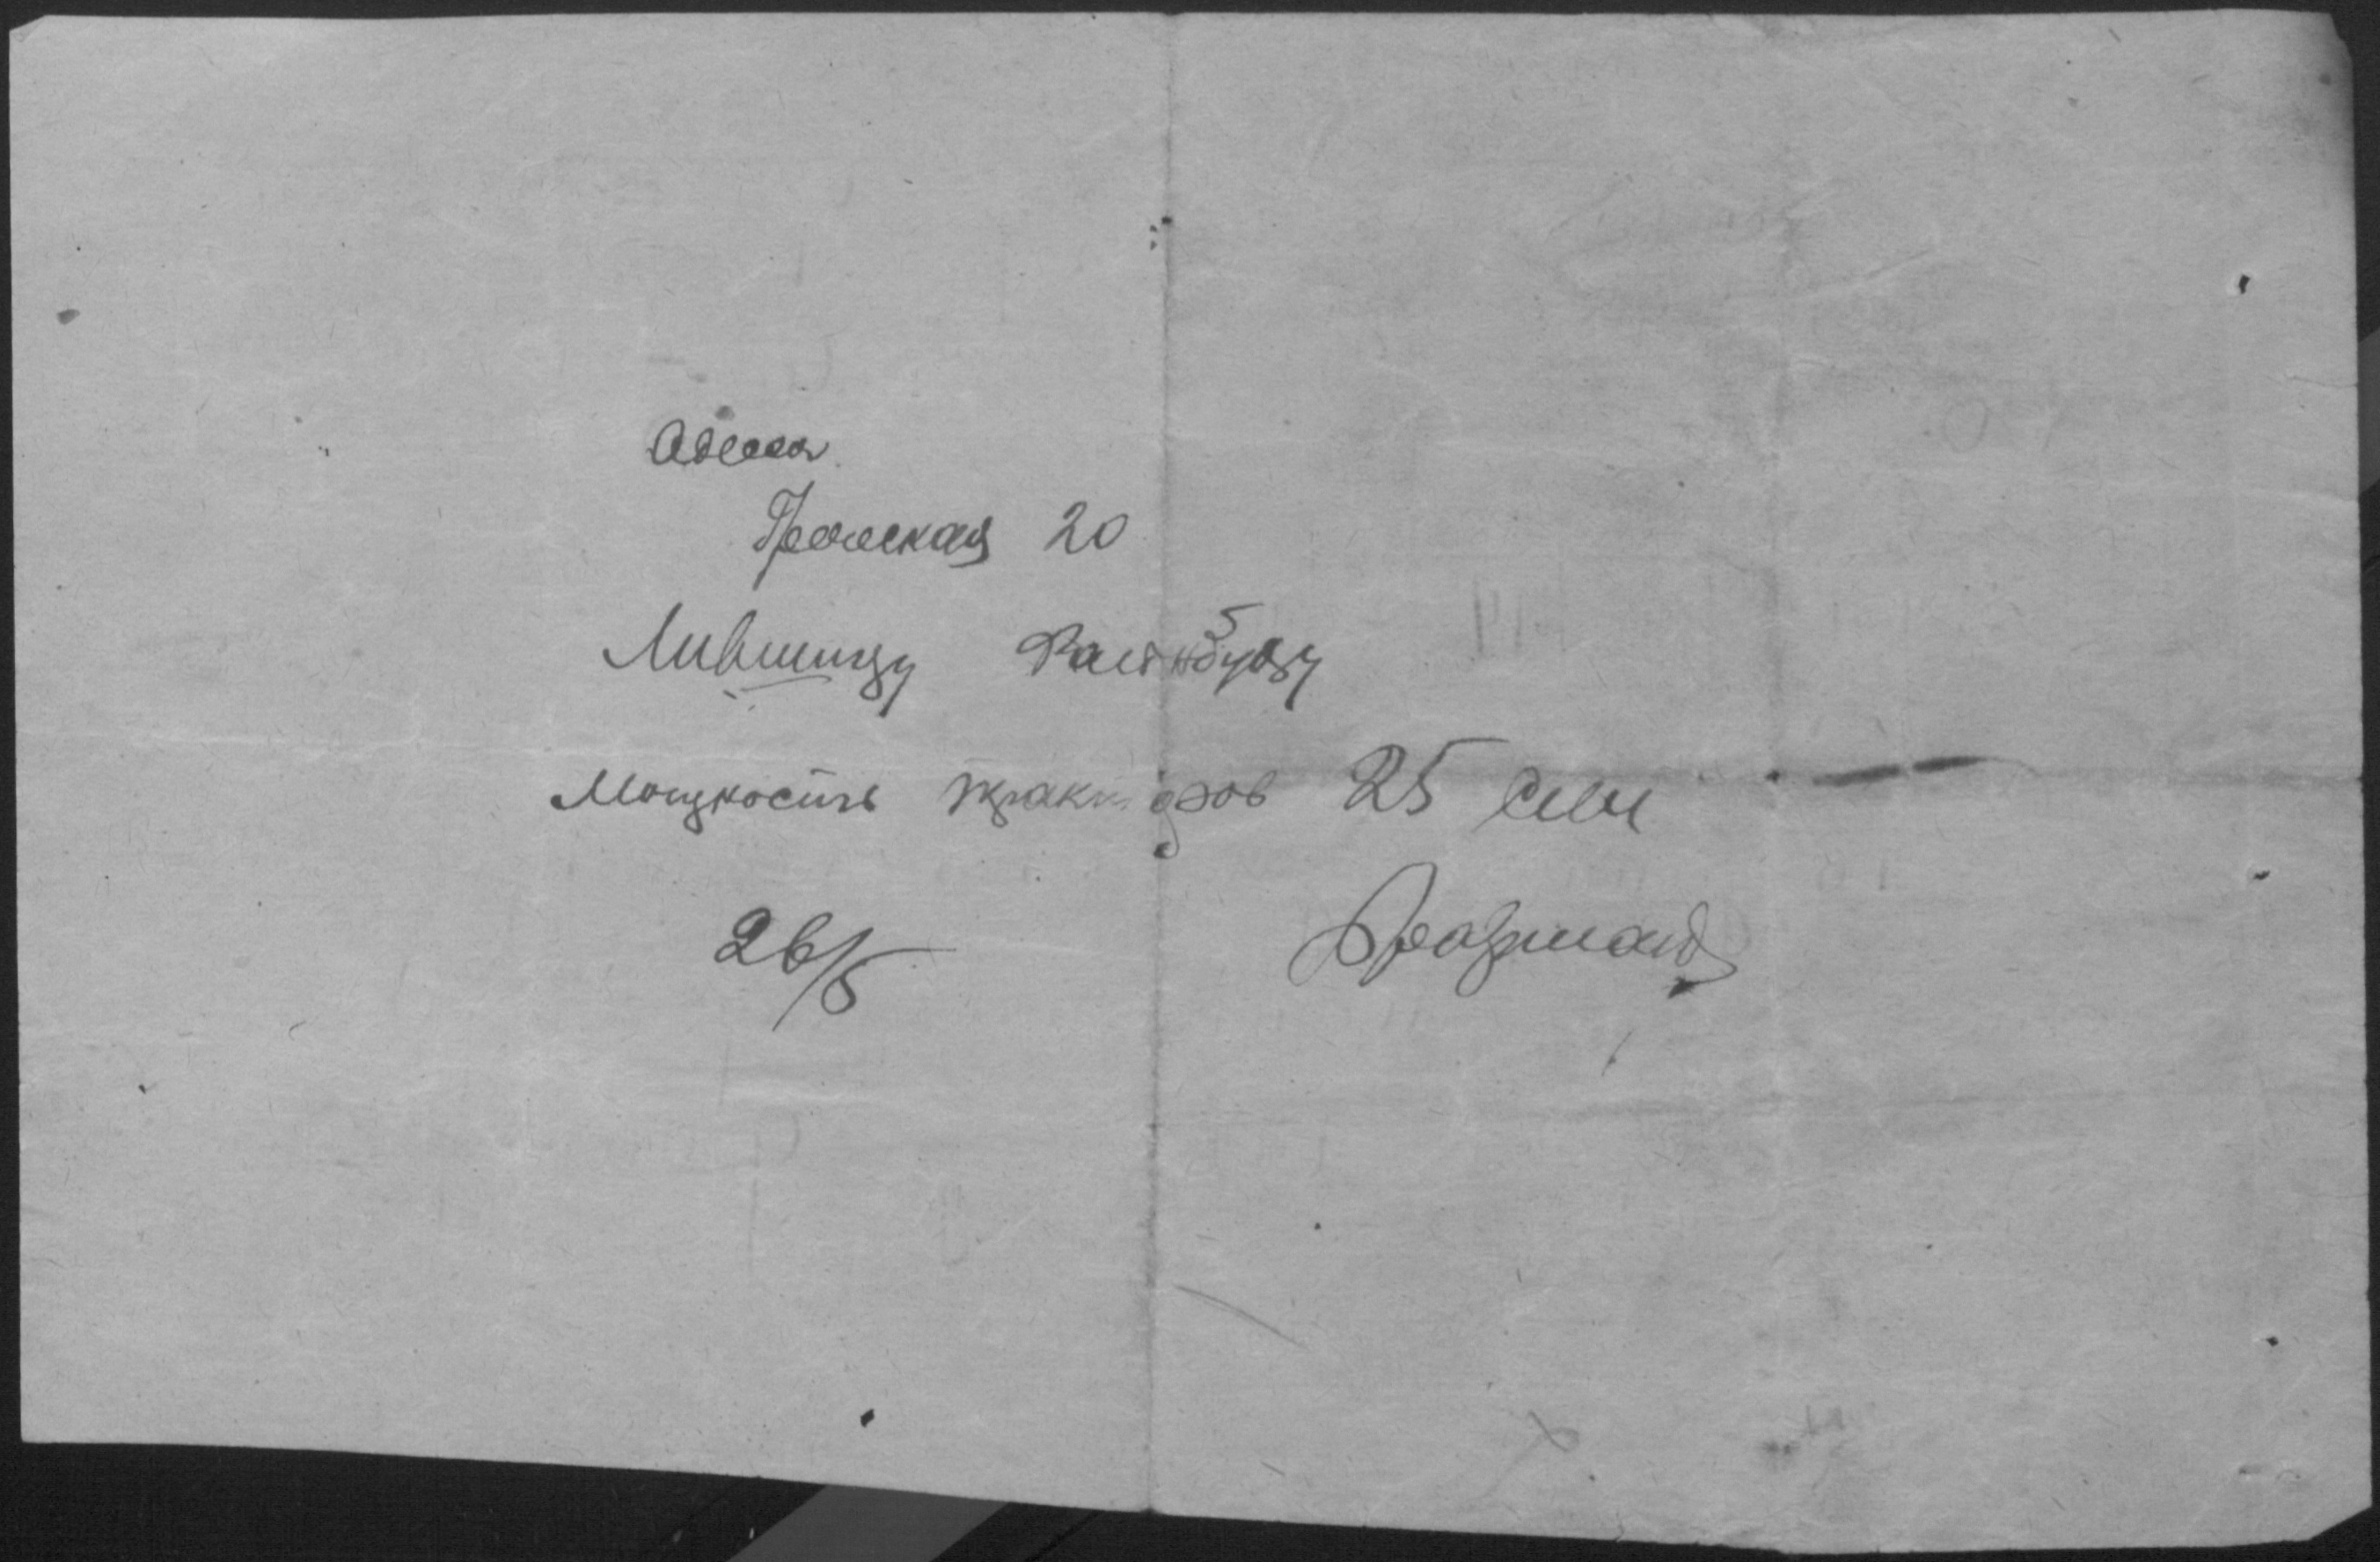 Одесса
Греческая 20
Лившицу
Мощность тракторов 25 сил
26/5